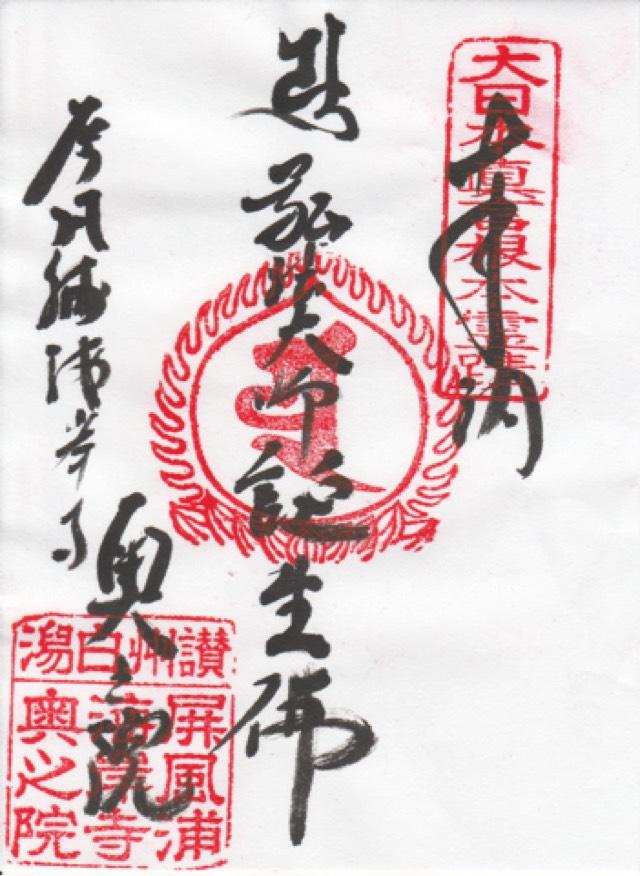 大日本眞言根本霊跡
奉納
弘法大師誕生佛
屏風浦海岸寺
奥之院
讃州白潟
屏風浦
海岸寺
奥之院